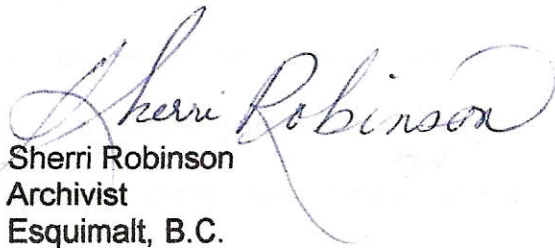 Sherri Robinson
Sherri Robinson
Archivist
Esquimalt, B.C.